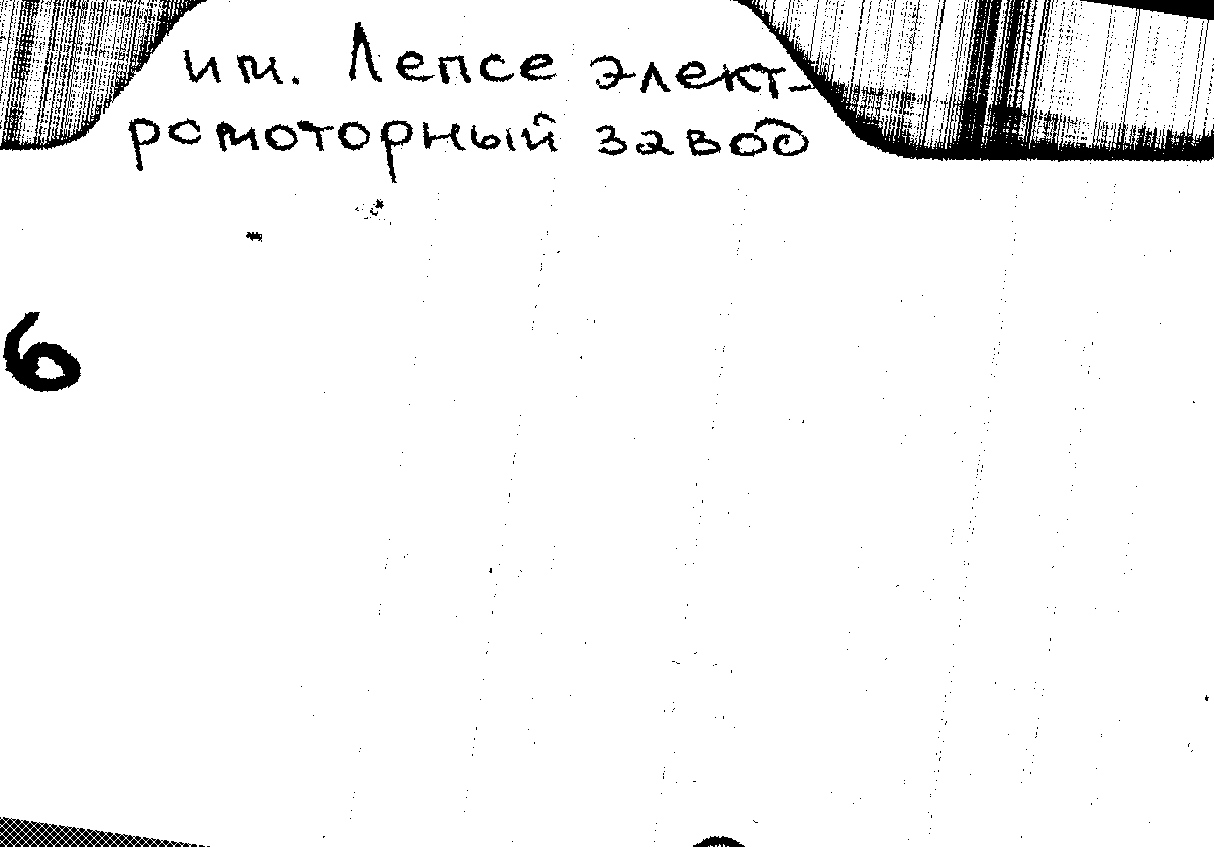 им. Лепсе элект-
ромоторный завод
6